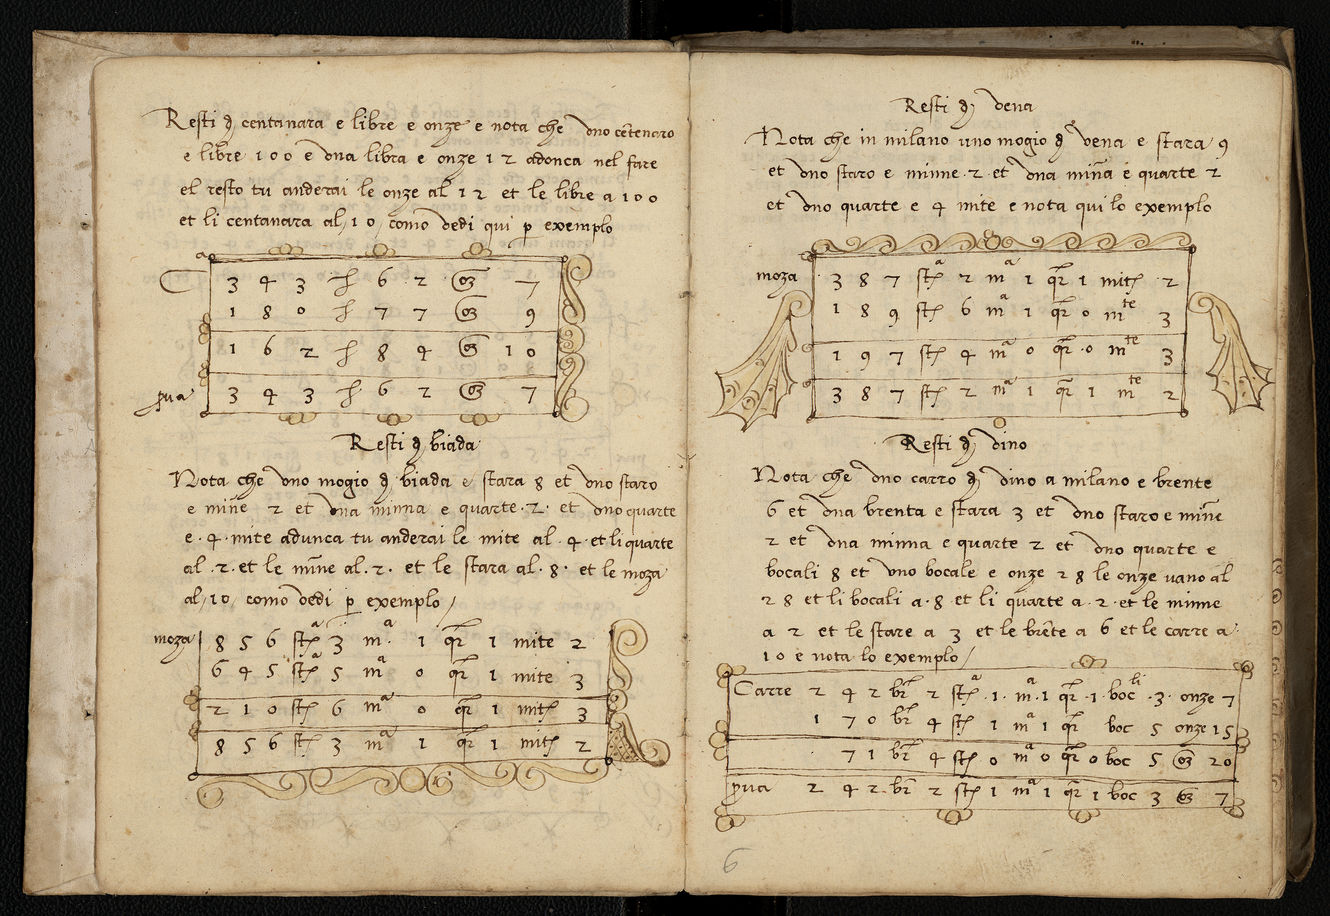 Resti đ centanara e libre e onze e nota che vno cētenaro
e libre 100 e vna libra e onze 12 adonca nel fare
el resto tu anderai le onze al 12 et le libre a 100
et li centanara al 10 como vedi qui p exemplo
C 3 4 3 6 2 oz 7
1 8 0 7 7 oz 9
1 6 2 8 4 oz 10
pua 3 4 3 6 2 oz 7
Resti đ biada
Nota che vno mogio đ biada e stara 8 et vno staro
e mine 2 et vna minna e quarte ·2· et vno quarte
e ·4· mite adunca tu anderai le mite al ·4· et li quarte
al ·2· et le mine al ·2· et le stara al ·8· et le moza
al 10 como vedi p exemplo /
moza 8 5 6 stª 3 mª 1 qr 1 mite 2
6 4 5 stª 5 mª 0 qr 1 mite 3
2 1 0 st 6 mª 0 qr 1 mit 3
8 5 6 st 3 mª 1 qr 1 mit 2
Resti đ vena
Nota che in milano uno mogio đ vena e stara 9
et vno staro e minne ·2· et vna mina e quarte 2
et vno quarte e 4 mite e nota qui lo exemplo
moza 3 8 7 stª 2 mª 1 qr 1 mit 2
1 8 9 st 6 mª 1 qr 0 mte 3
1 9 7 st 4 mª 0 qr 0 mte 3
3 8 7 st 2 mª 1 qr 1 mte 2
Resti đ vino
Nota che vno carro đ vino a milano e brente
6 et vna brenta e stara 3 et vno staro e mine
2 et vna minna e quarte 2 et vno quarte e
bocali 8 et vno bocale e onze 28 le onze vano al
28 et li bocali a ·8· et li quarte a ·2· et le minne
a 2 et le stare a 3 et le brēte a 6 et le carre a
10 e nota lo exemplo /
Carre 2 4 2 br 2 stª ·1· mª 1 qr ·1· bocli ·3· onze 7
1 7 0 br 4 st 1 mª 1 qr boc 5 onze 15
7 1 br 4 st 0 mª 0 qr 0 boc 5 oz 20
pua 2 4 2 br 2 st 1 mª 1 qr 1 boc 3 oz 7
6